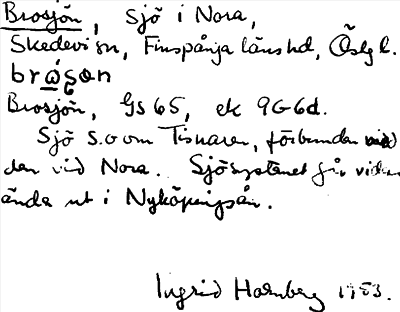 Brosjön, sjö i Nora,
Skedevi sn, Finspånga länshd, Östg l.
Brosjön, Gs 65, ek 9G6d.
Sjö S.O om Tisnaren, förbunden med
den vid Nora. Sjösystemet går vidare
ända ut i Nyköpingsån.
Ingrid Holmberg 1983.